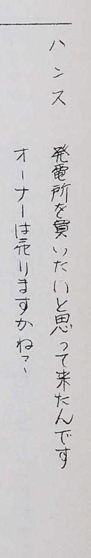 ハンス　発電所を買いたいと思って来たんです
オーナーは売りますかね?、